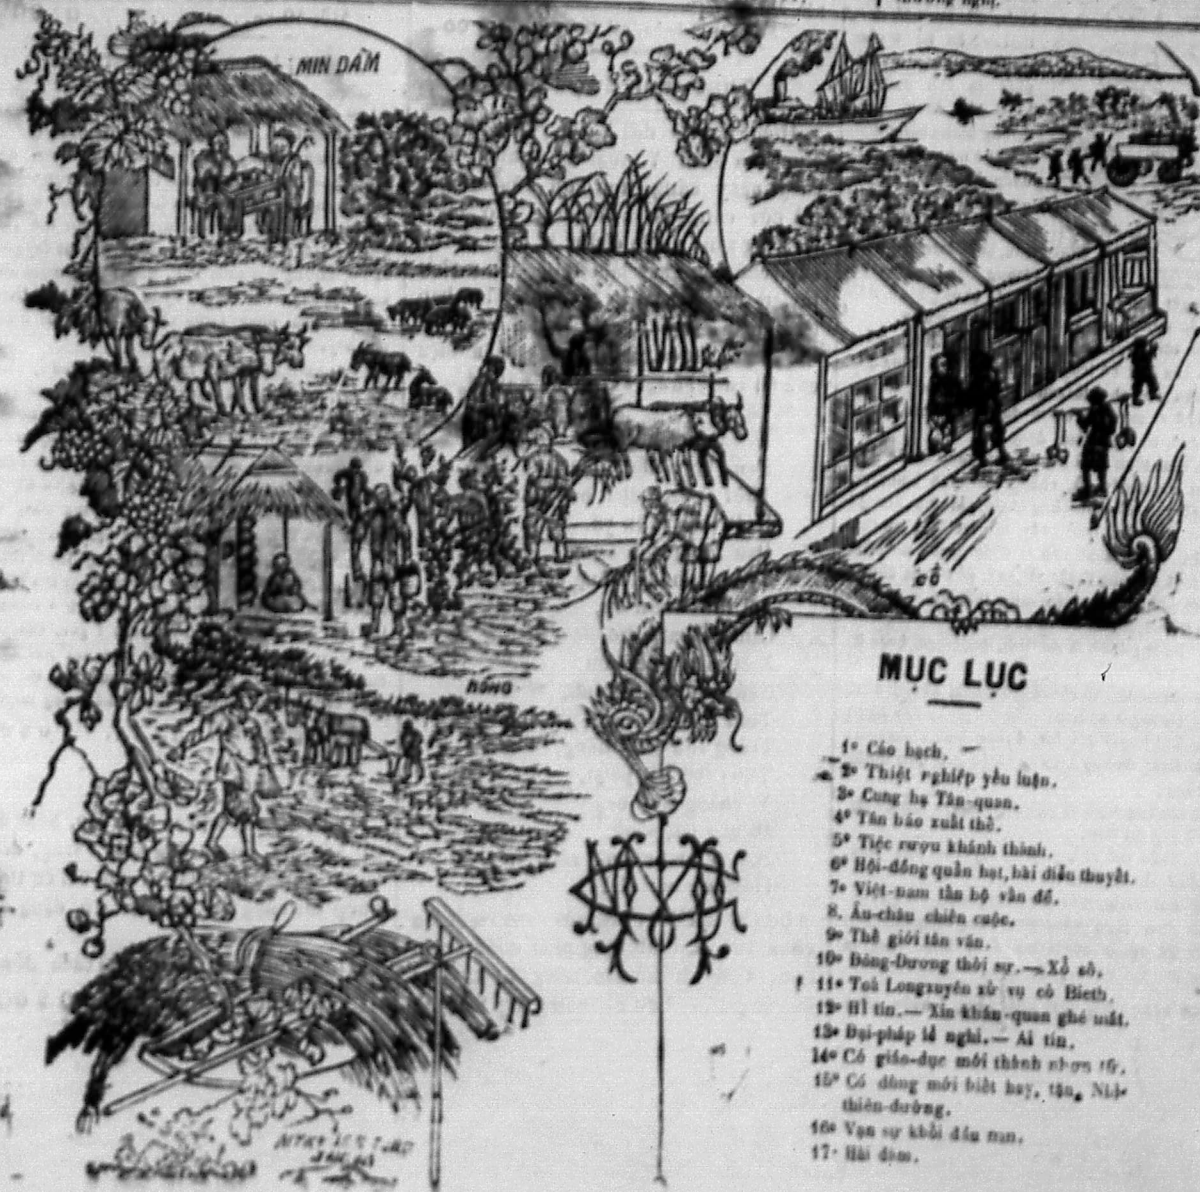 MIN ĐÀM
CỔ
NÔNG
MỤC LỤC
1º Cáo bạch. —
2º Thiệt nghiệp yếu luận.
3º Cung hạ Tân-quan.
4º Tân báo xuất thế.
5º Tiệc rượu khánh thành.
6º Hội-đồng quản hạt, bài diễn thuyết.
7º Việt-nam tân bộ vấn đề.
8. Âu-châu chiến cuộc.
9º Thế giới tân văn.
10º Đông-Dương thời sự.— Xổ số.
11º Toà Longxuyên xử vụ cô Bieth.
12º Hỉ tin.— Xin khán-quan ghé mắt.
13º Đại-pháp lễ nghi.— Ai tín.
14º Có giáo-dục mới thành nhơn
15º Có dùng mới biết hay,
thiên-đường.
16º Vạn sự khởi đầu nan.
17· Hài đàm.